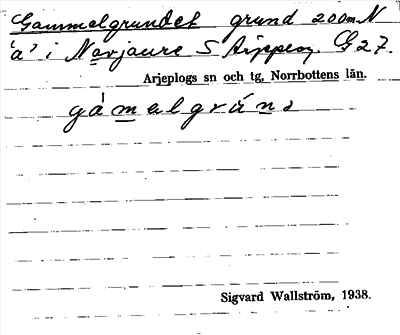 Gammelgrundet grund 200m N
'a' i Navjaure S Arjeplog. G27.
Arjeplogs sn och tg, Norrbottens län.
gámalgráns
Sigvard Wallström, 1938.